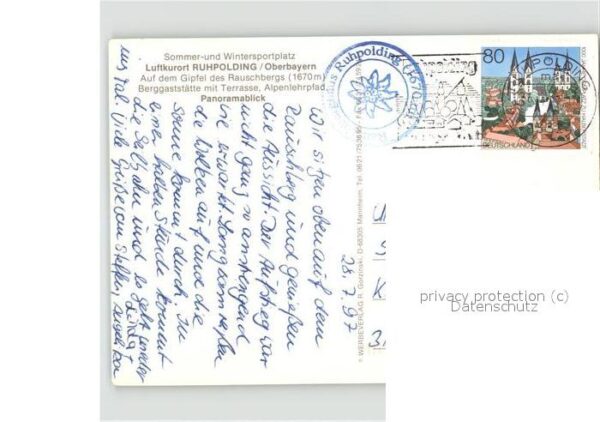 Sommer-und Wintersportplatz
Luftkurort RUHPOLDING/Oberbayern
Auf dem Gipfel des Rauschbergs (1670m)
Berggaststätte mit Terrasse, Alpenlehrpfad,
Panoramablick
Ruhpolding
80
DEUTSCHLAND
28.7.97
Wir sitzen oben auf dem
Rauschberg und genießen
die Aussicht. Der Aufstieg war
nicht ganz so anstrengend
wie erwartet. Langsam reißen
die Wolken auf und die
Sonne kommt durch. In
einer halben Stunde kommt
die Seilbahn und es geht wieder
ins Tal. Viele Grüße von Steffen,
© WERBEVERLAG R. Gorzinski, D-68305 Mannheim, Tel. 0621/753695
privacy protection (c)
Datenschutz